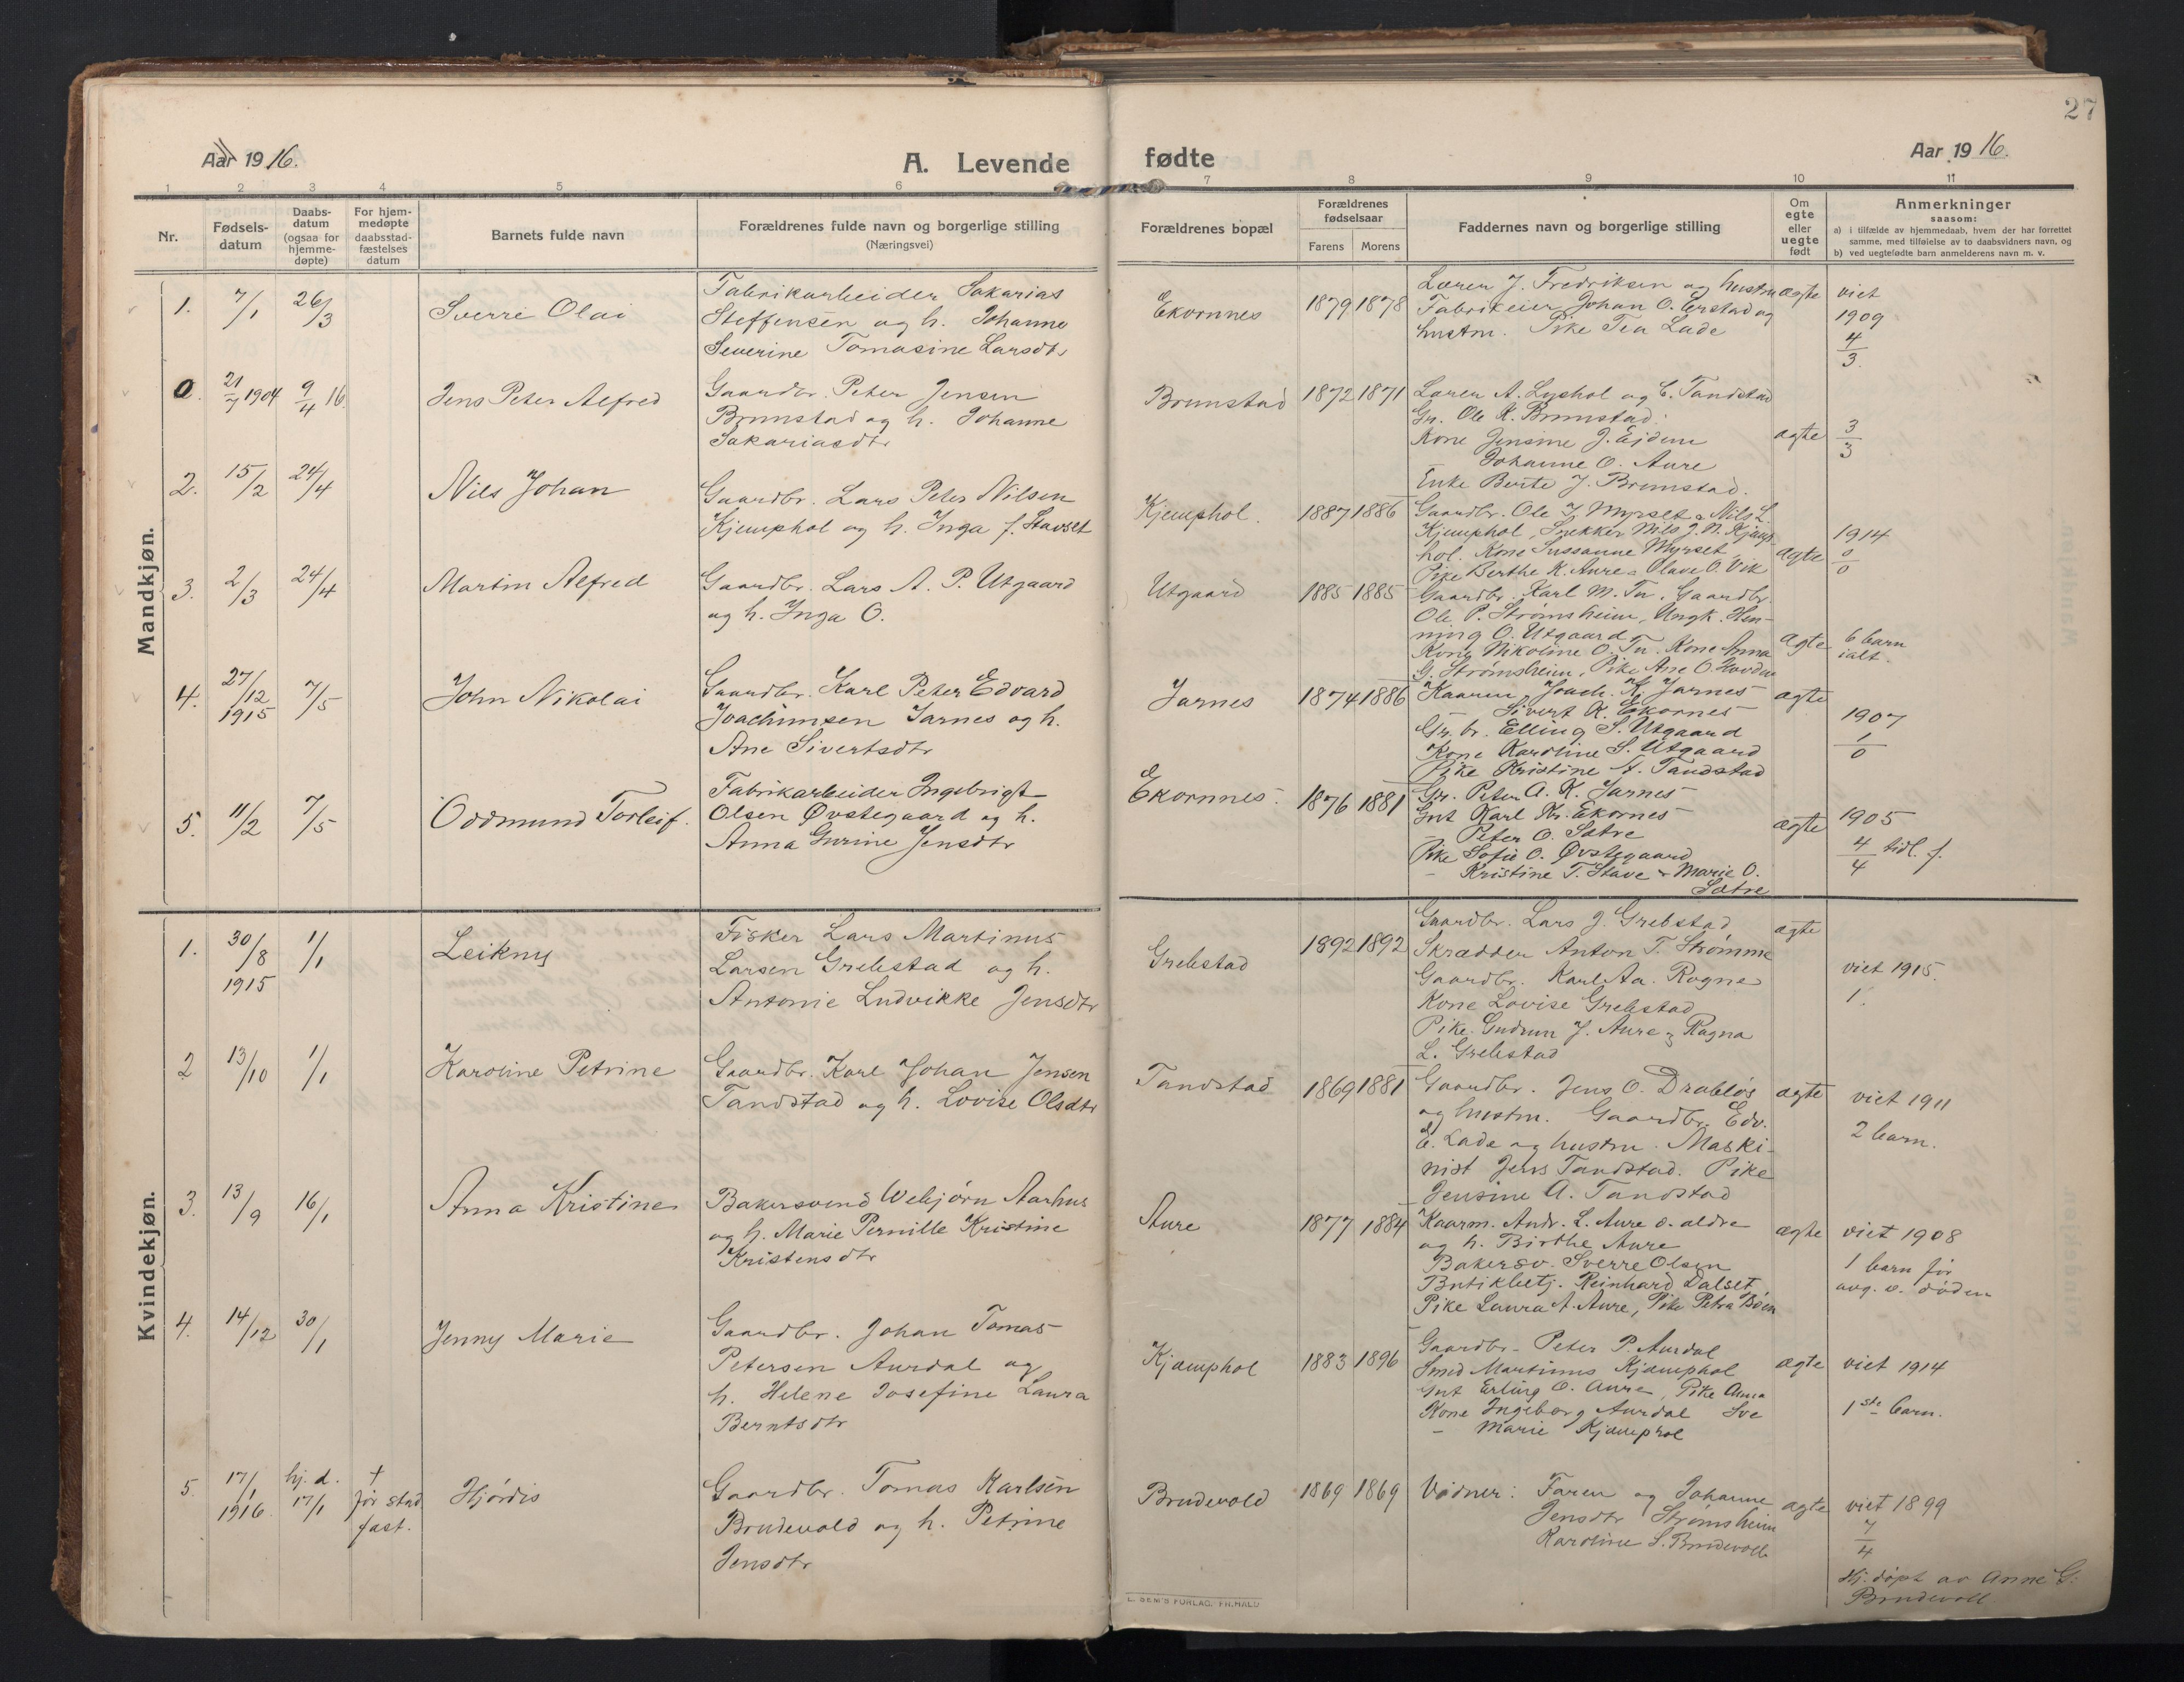 27
Aar 1916.
A. Levende fødte
Aar 1916.
1 2 3 4 5 6 7 8 9 10 11
Nr.
Fødsels-
datum
Daabs-
datum
(ogsaa for
hjemme-
døpte)
For hjem-
medøpte
daabsstad-
fæstelses
datum
Barnets fulde navn
Forældrenes fulde navn og borgerlige stilling
(Næringsvei)
Forældrenes bopæl
Forældrenes
fødselsaar
Farens Morens
Faddernes navn og borgerlige stilling
Om
egte
eller
uegte
født
Anmerkninger
saasom:
a) i tilfælde av hjemmedaab, hvem der har forrettet
samme, med tilføielse av to daabsvidners navn, og
b) ved uegtefødte barn anmelderens navn m. v.
Mandkjøn.
1. 7/1 26/3 Sverre Olai
Fabrikarbeider Sakarias
Steffensen og h. Johanne
Severine Tomasine Larsdtr
Ekornnes 1879 1878
Lærer J. Fredriksen og hustru
Fabrikeier Johan O. Erstad og
hustru. Pike Tea Lade
ægte
viet
1909
4/3.
0. 21/7 1904 9/4 16. Jens Peter Alfred
Gaardbr. Peter Jensen
Brunstad og h. Johanne
Sakariasdtr
Brunstad 1872 1871
Lærer A. Lyshol og C. Tandstad
Gr. Ole K. Brunstad.
Kone Jensine J. Ejdem
Johanne O. Aure
Enke Berte J. Brunstad.
ægte
3/3
2. 15/2 24/4 Nils Johan
Gaardbr. Lars Peter Nilsen
Kjemphol og h. Inga f. Stavset
Kjemphol. 1887 1886
Gaardbr. Ole J. Myrset, Nils L.
Kjemphol, Snekker Nils J. N. Kjemp-
hol. Kone Sussanne Myrset,
Pike Berthe K. Aure, Olave O. Vik
ægte
1914
0/0
3. 2/3 24/4 Martin Alfred
Gaardbr. Lars A. P. Utgaard
og h. Inga O.
Utgaard 1885 1885
Gaardbr. Karl M. Tu, Gaardbr.
Ole P. Strømsheim, Ungk. Hen-
ning O. Utgaard
Kone Nikoline O. Tu. Kone Anna
G. Strømsheim, Pike Ane O. Hovden
ægte
6 barn
ialt.
4. 27/12 1915 7/5 John Nikolai
Gaardbr. Karl Peter Edvard
Joachimsen Jarnes og h.
Ane Sivertsdtr
Jarnes 1874 1886
Kaarm. Joach. K. Jarnes
Sivert K. Ekornes
Gr. br. Elling S. Utgaard
Kone Karoline S. Utgaard
Pike Kristine A. Tandstad
ægte
1907
1/0
5. 11/2 7/5 Oddmund Torleif.
Fabrikarbeider Ingebrigt
Olsen Øvstegaard og h.
Anna Gurine Jensdtr
Ekornnes. 1876 1881
Gr. Peter A. K. Jarnes
Gut Karl Kr. Ekornes
– Peter O. Sætre
Pike Sofie O. Øvstegaard
– Kristine T. Stave & Marie O.
Sætre
ægte
1905
4/4 tidl. f.
Kvindekjøn.
1. 30/8 1915 1/1 Leikny
Fisker Lars Martinus
Larsen Grebstad og h.
Antonie Ludvikke Jensdtr
Grebstad 1892 1892
Gaardbr. Lars J. Grebstad
Skrædder Anton T. Strømme
Gaardbr. Karl Aa. Rogne
Kone Lovise Grebstad
Pike Gudrun J. Aure & Ragna
L. Grebstad
ægte
viet 1915.
1.
2 13/10 1/1 Karoline Petrine
Gaardbr. Karl Johan Jensen
Tandstad og h. Lovise Olsdtr
Tandstad 1869 1881
Gaardbr. Jens O. Drabløs
og hustru. Gaardbr. Edv.
E. Lade og hustru. Maski-
nist Jens Tandstad. Pike
Jensine A. Tandstad
ægte
viet 1911
2 barn.
3. 13/9 16/1 Anna Kristine
Bakersvend Webjørn Aarhus
og h. Marie Pernille Kristine
Kristensdtr
Aure 1877 1884
Kaarm. Andr. L. Aure d. ældre
og h. Birthe Aure
Bakersv. Sverre Olsen
Butikbetj. Reinhard Dalset
Pike Laura A. Aure, Pike Petra Bøen
ægte
viet 1908
1 barn før
avg. v. døden
4. 14/12 30/1 Jenny Marie
Gaardbr. Johan Tomas
Petersen Aurdal og
h. Helene Josefine Laura
Berntsdtr
Kjæmphol 1883 1896
Gaardbr. Peter P. Aurdal
Smed Martinus Kjæmphol
Gut Erling O. Aure, Pike Anna
Kone Ingeborg Aurdal Sve
– Marie Kjæmphol
ægte
viet 1914
1ste barn.
5. 17/1 1916. hj. d. 17/1
†
før stad
fæst.
Hjørdis
Gaardbr. Tomas Karlsen
Brudevold og h. Petrine
Jensdtr
Brudevold 1869 1869
Vidner: Faren og Johanne
Jensdtr Strømsheim
Karoline S. Brudevoll
ægte
viet 1899
7/4
Hj. døpt av Anne G.
Brudevoll
L. SEM'S FORLAG, FR.HALD